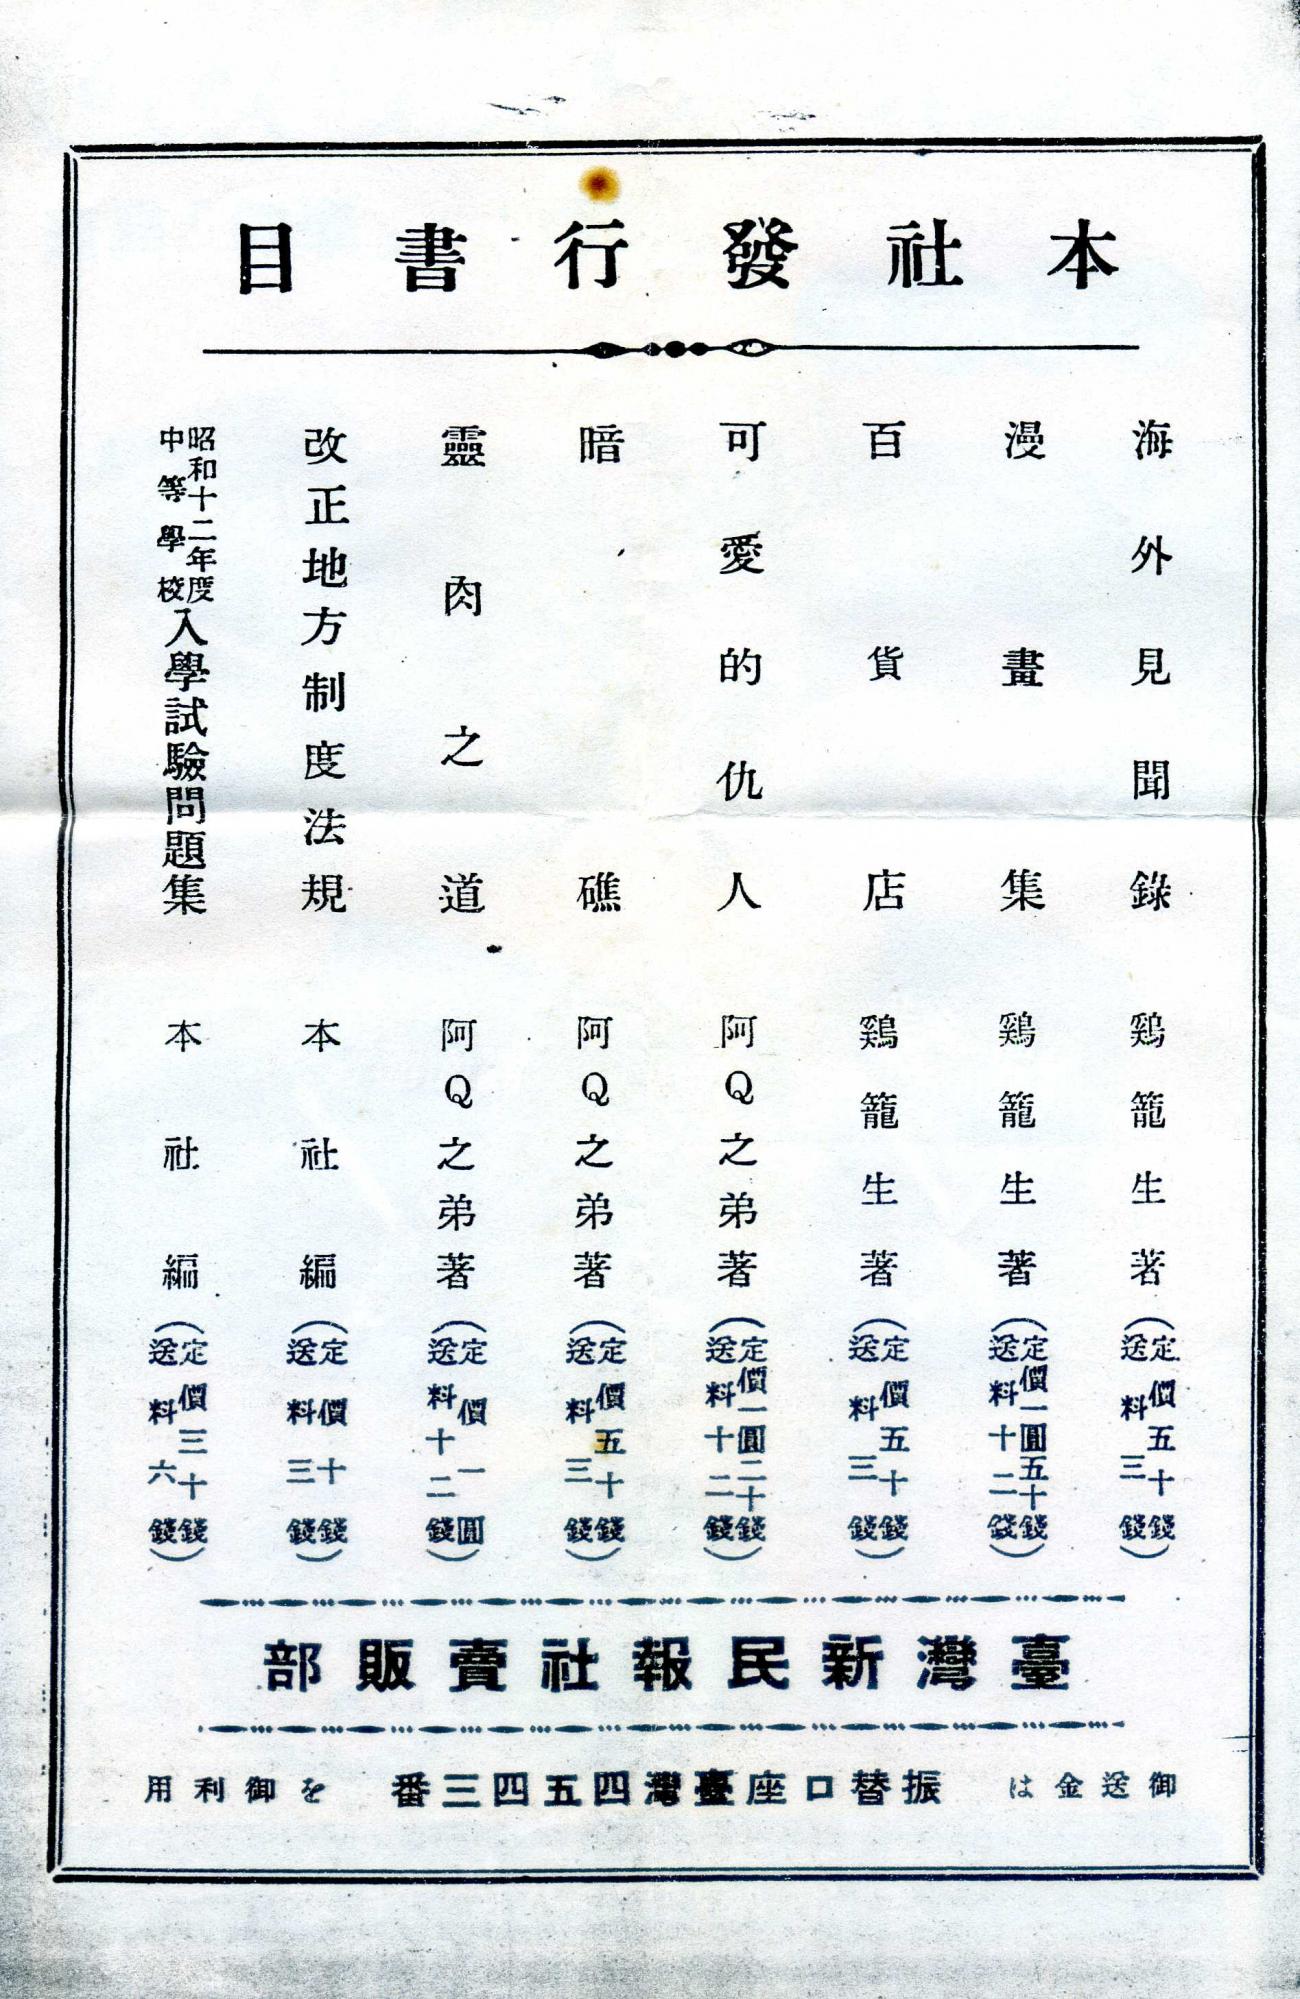 本社發行書目
海外見聞錄 鷄籠生著 (定價五十錢 送料三錢)
漫畫集 鷄籠生著 (定價一圓五十錢 送料十二錢)
百貨店 鷄籠生著 (定價五十錢 送料三錢)
可愛的仇人 阿Q之弟著 (定價一圓二十錢 送料十二錢)
暗礁 阿Q之弟著 (定價五十錢 送料三錢)
靈肉之道 阿Q之弟著 (定價一圓 送料十二錢)
改正地方制度法規 本社編 (定價十錢 送料三錢)
昭和十二年度中等學校入學試驗問題集 本社編 (定價三十錢 送料六錢)
臺灣新民報社賣販部
御送金は振替口座臺灣四五四三番を御利用